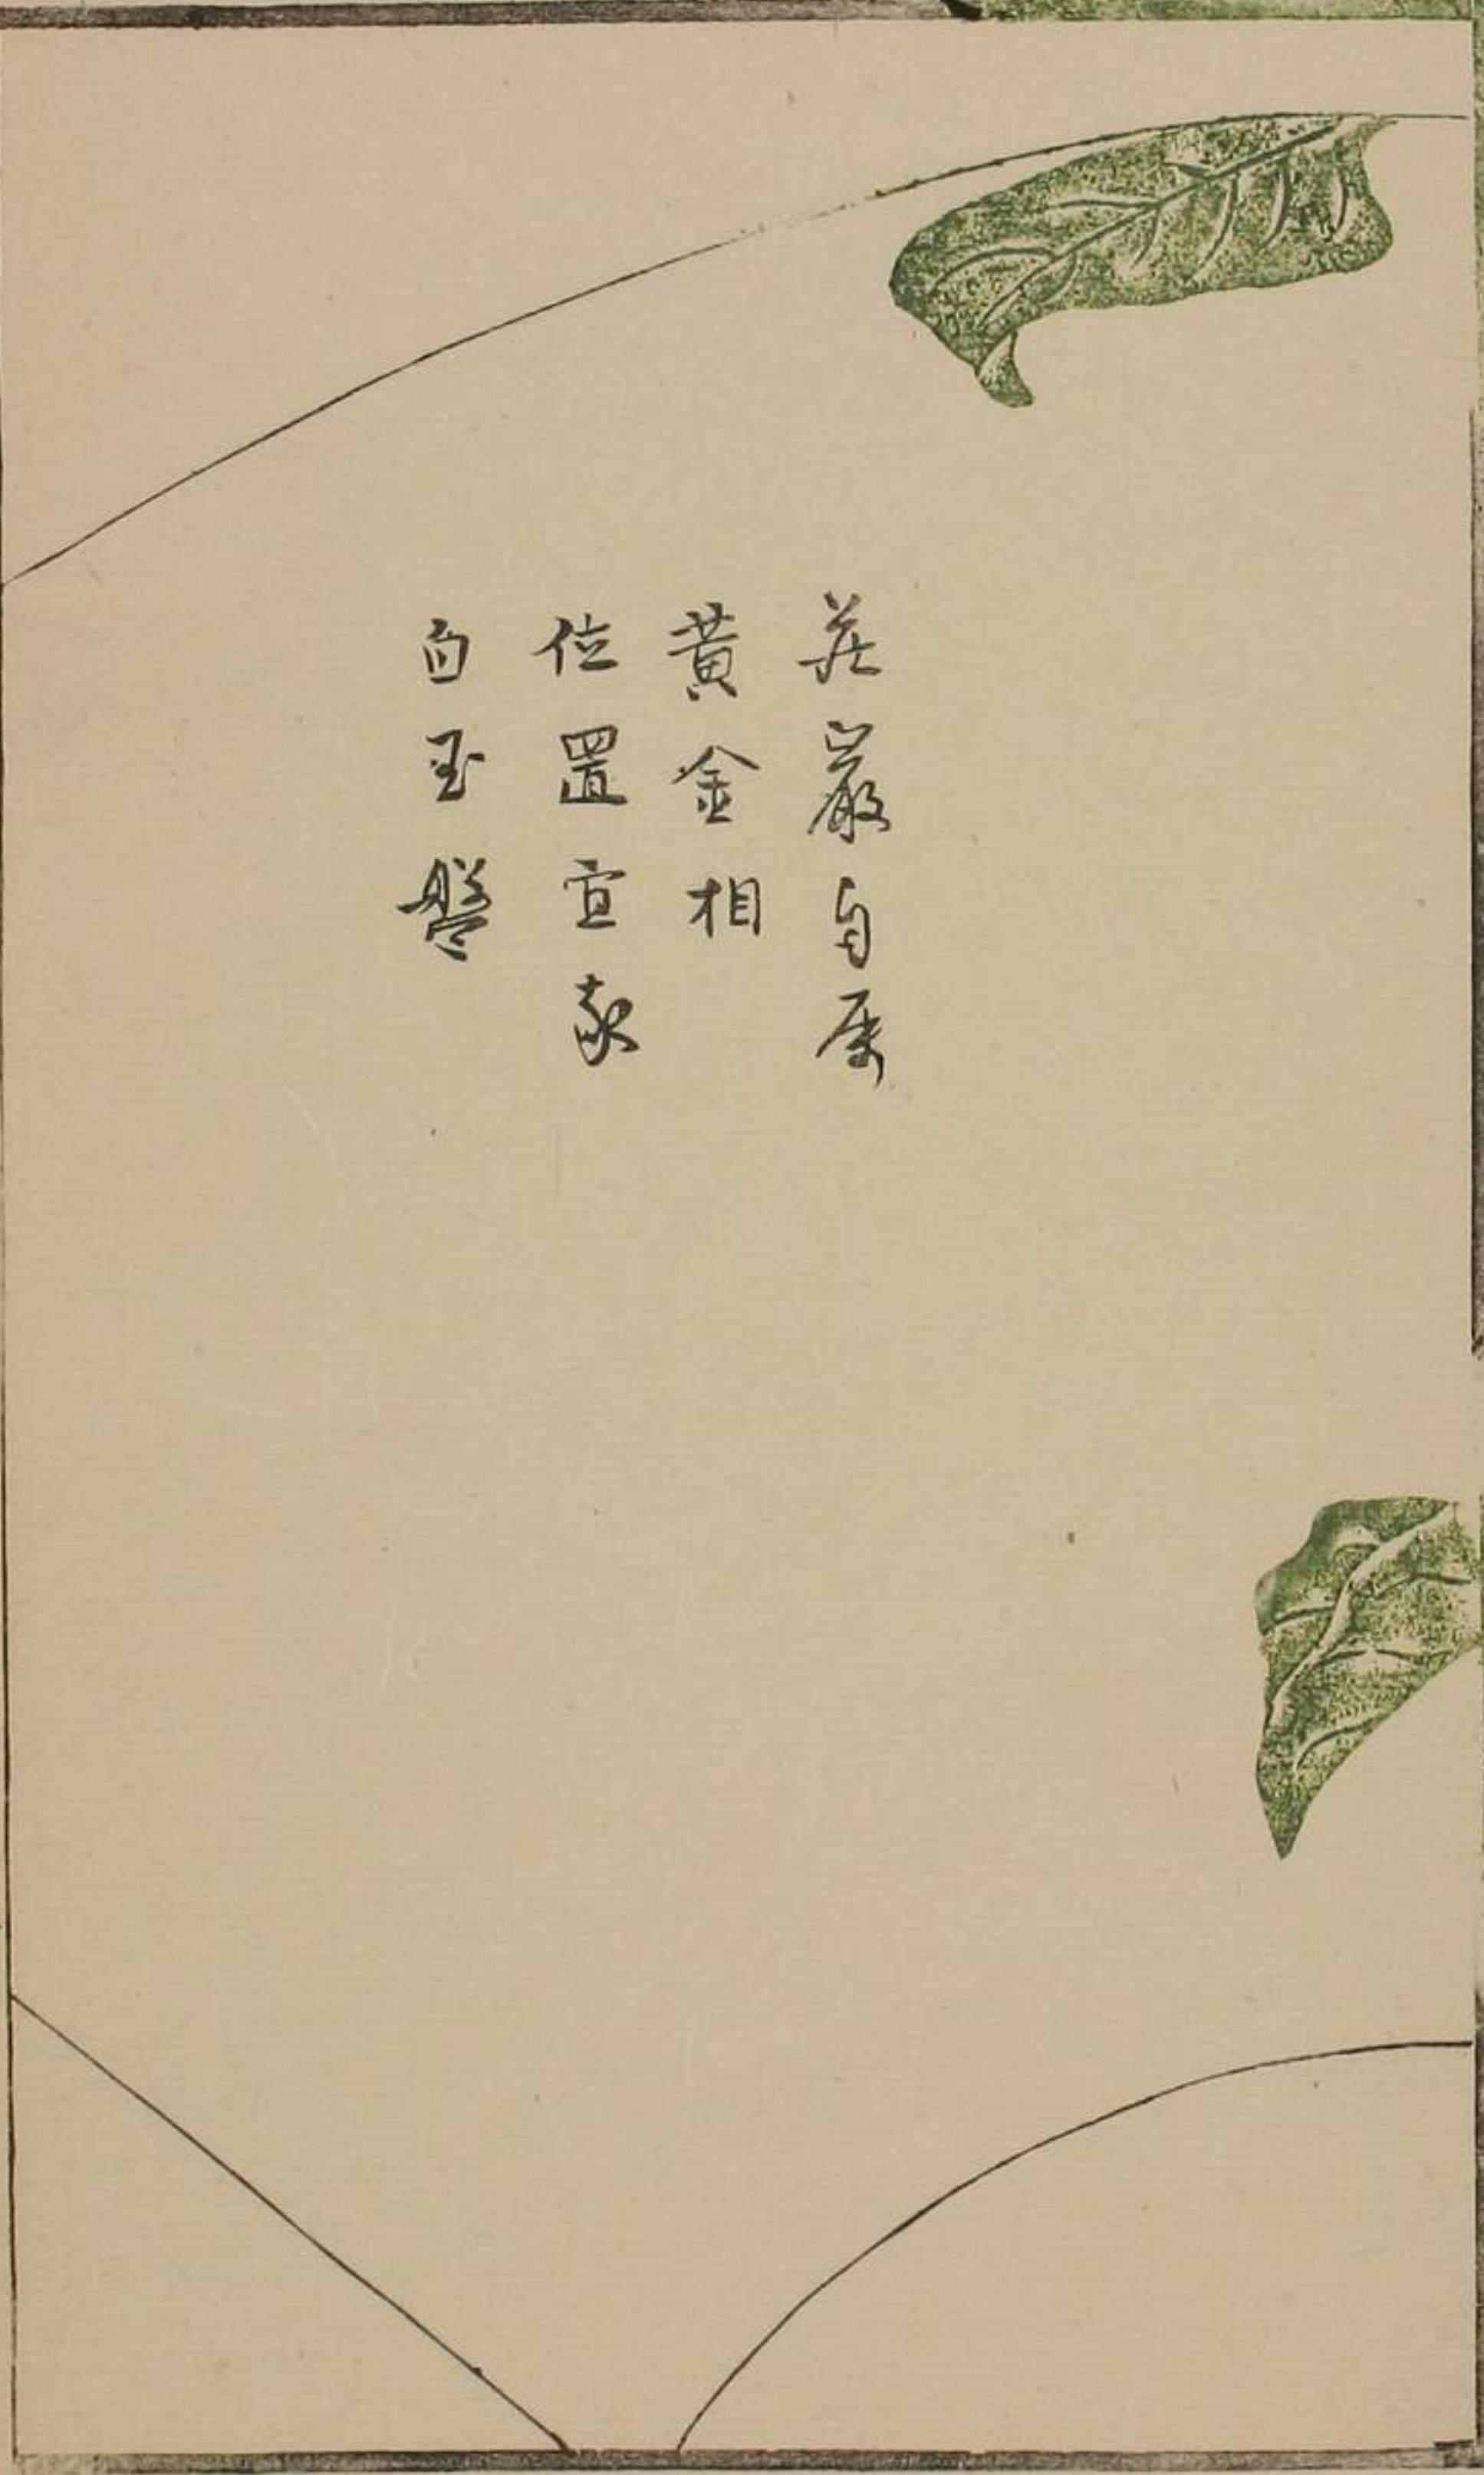 莊嚴自屬
黃金相
位置宜敦
白玉盤